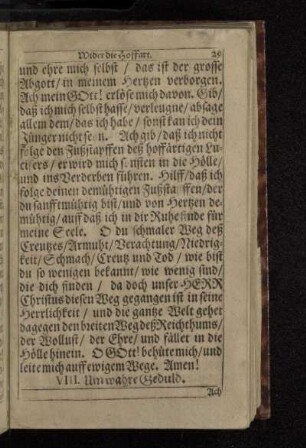 Wider die Hoffart. 29
und ehre mich selbst / das ist der grosse
Abgott / in meinem Hertzen verborgen.
Ach mein GOtt! erlöse mich davon. Gib /
daß ich mich selbst hasse / verleugne / absage
allem dem / das ich habe / sonst kan ich dein
Jünger nicht seyn. Ach gib / daß ich nicht
folge den Fußstapffen deß hoffärtigen Lu-
cifers / er wird mich sonsten in die Hölle /
und ins Verderben führen. Hilff / daß ich
folge deinen demühtigen Fußstapffen / der
du sanfftmühtig bist / und von Hertzen de-
mühtig / auff daß ich in dir Ruhe finde für
meine Seele. O du schmaler Weg deß
Creutzes / Armuht / Verachtung / Niedrig-
keit / Schmach / Creutz und Tod / wie bist
du so wenigen bekannt / wie wenig sind /
die dich finden / da doch unser HERR
Christus diesen Weg gegangen ist in seine
Herrlichkeit / und die gantze Welt gehet
dagegen den breiten Weg deß Reichthums /
der Wollust / der Ehre / und fället in die
Hölle hinein. O GOtt! behüte mich / und
leite mich auff ewigem Wege. Amen!
VIII. Um wahre Geduld.
Ach